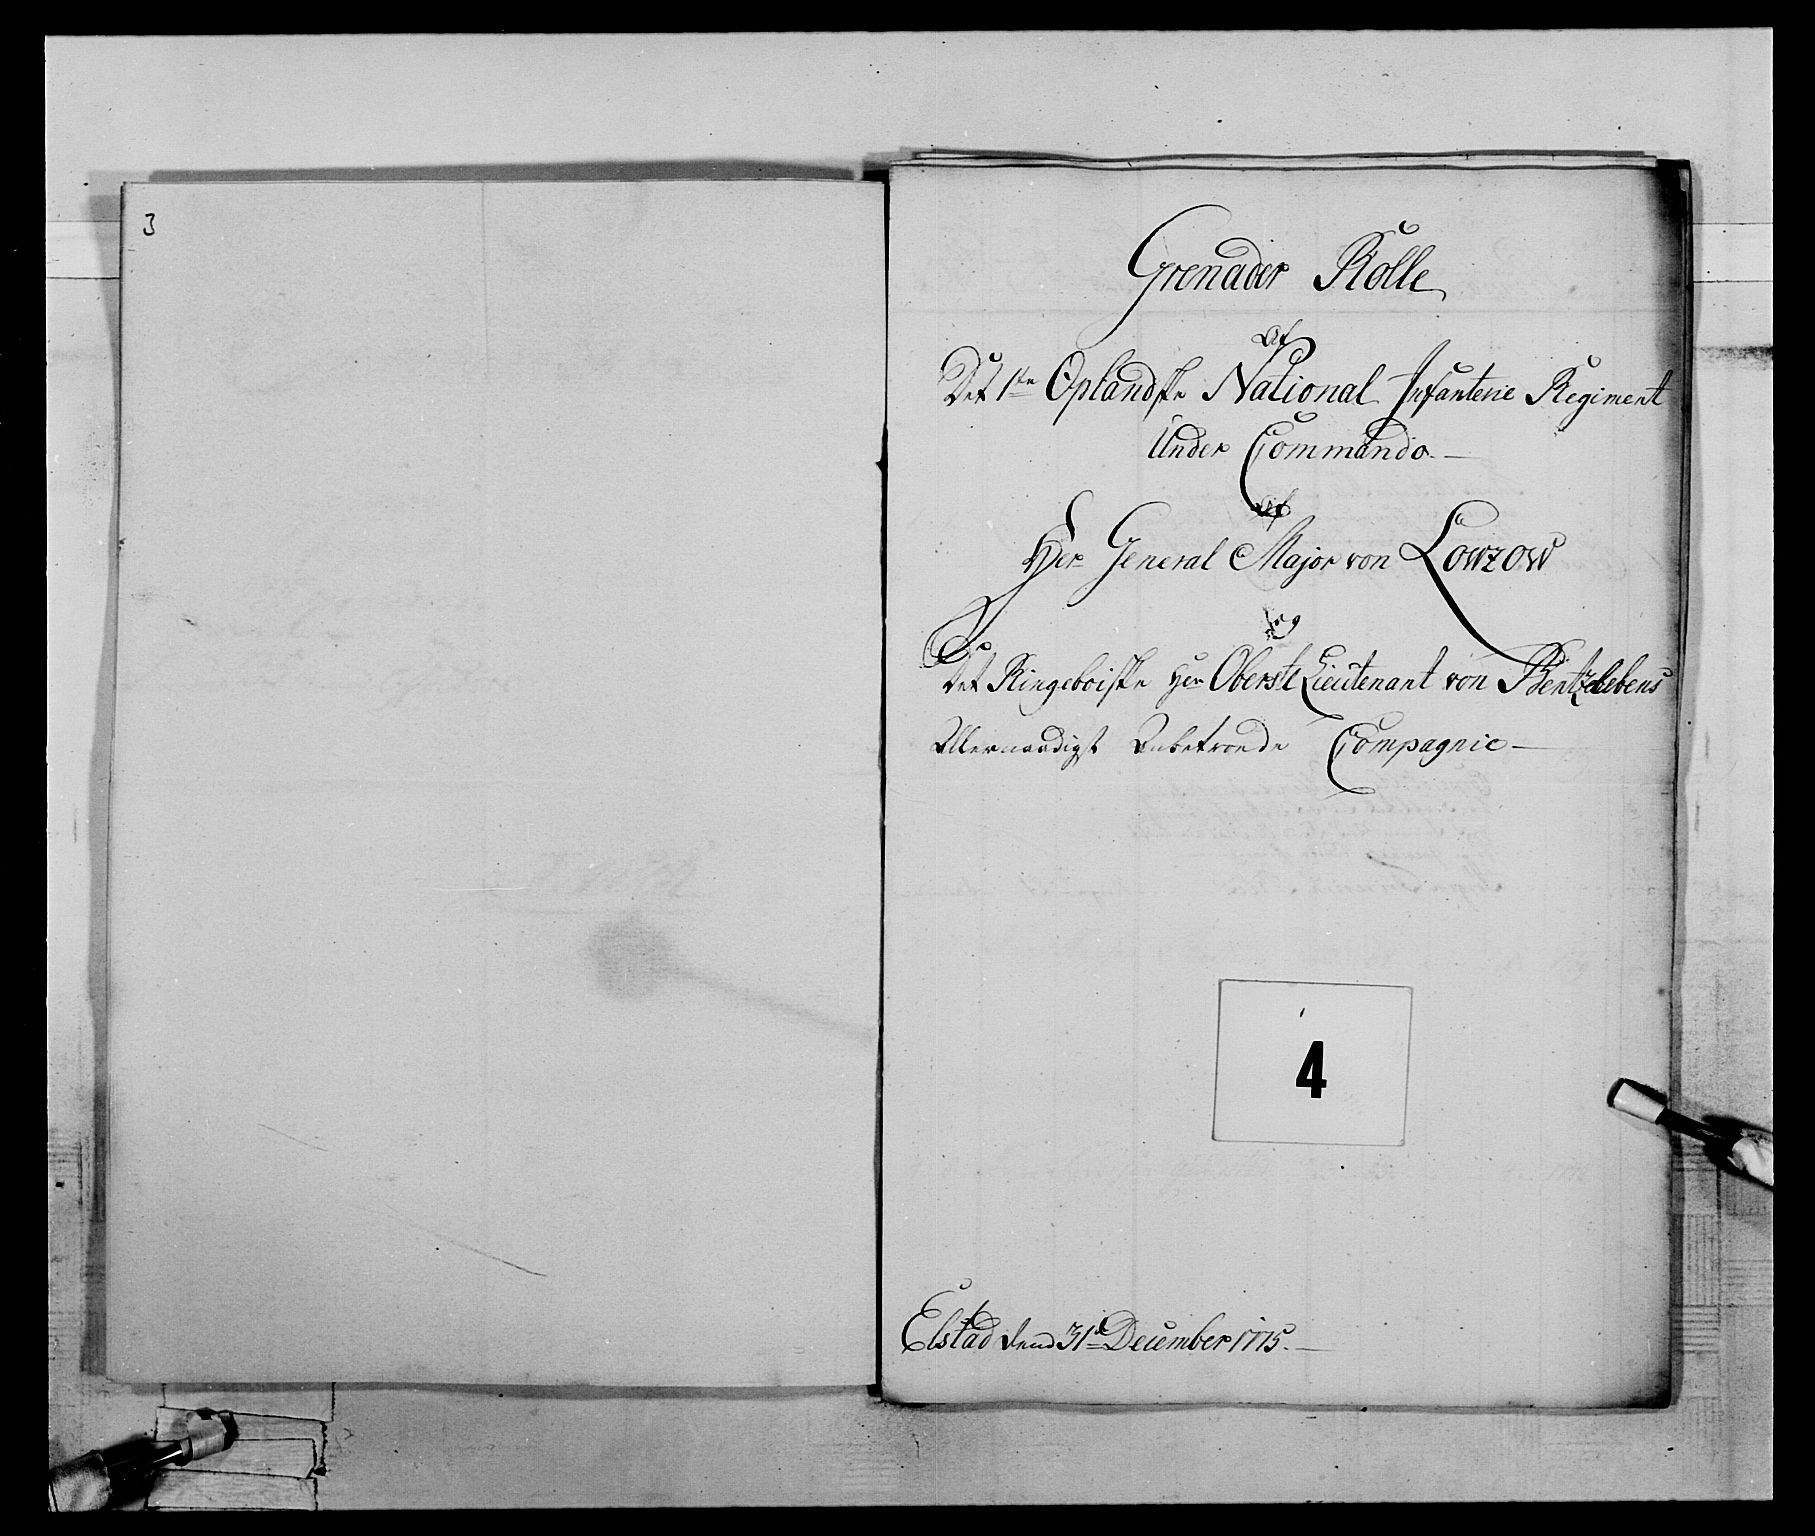 3
Grenadeer Rolle
Af
Det 1ste Oplandske National Infanterie Regiment
Under Commando
Af
Her General Major von Lowzow
og
Det Ringeboiske Her Oberste Lieutenant von Bentzelebens
Allernaadigst Anbetroede Compagnie
4
Elstad dend 31te December 1775.